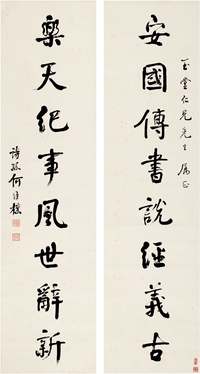 玉堂仁兄先生属正
安國傳書說經義古
樂天紀事風世辭新
詩孫何維樸